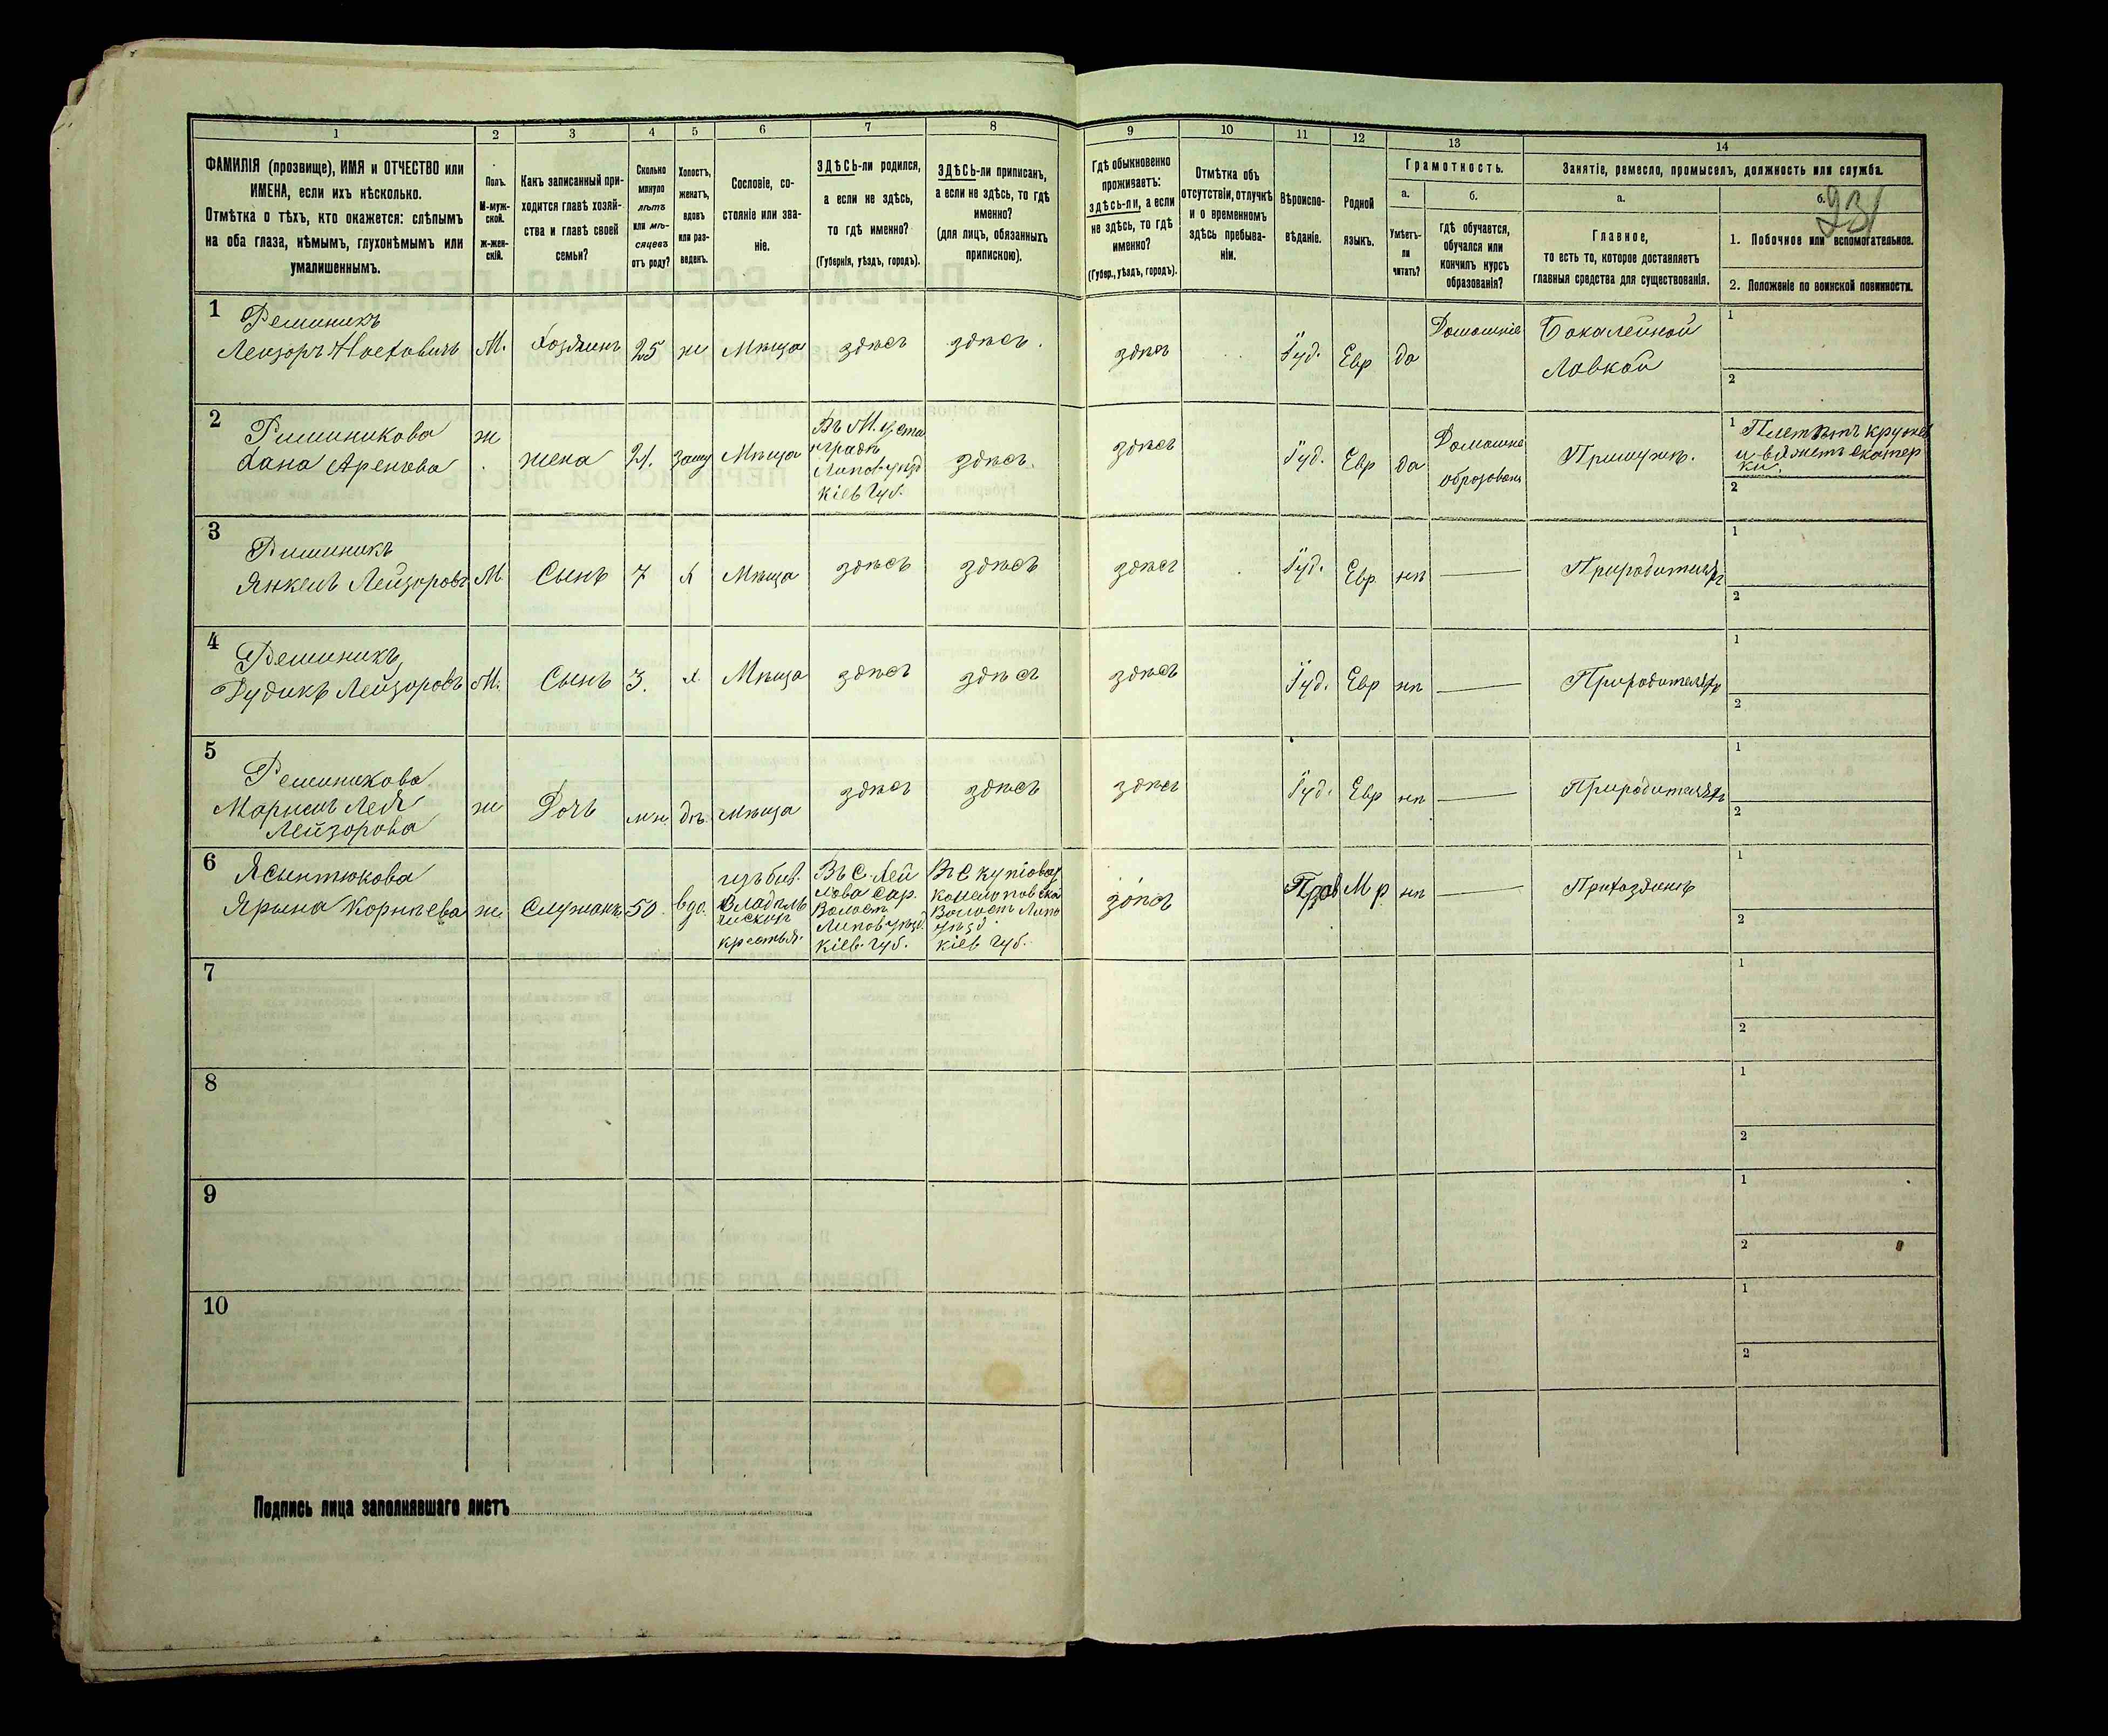 1 2 3 4 5 6 7 8 9 10 11 12 13 14
ФАМИЛІЯ (прозвище), ИМЯ и ОТЧЕСТВО или
ИМЕНА, если ихъ нѣсколько.
Отмѣтка о тѣхъ, кто окажется: слѣпымъ
на оба глаза, нѣмымъ, глухонѣмымъ или
умалишеннымъ.
Полъ.
М-муж-
ской.
ж-жен-
скій.
Какъ записанный при-
ходится главѣ хозяй-
ства и главѣ своей
семьи?
Сколько
минуло
лѣтъ
или мѣ-
сяцевъ
отъ роду?
Холостъ,
женатъ,
вдовъ
или раз-
веденъ.
Сословіе, со-
стояніе или зва-
ніе.
ЗДѢСЬ-ли родился,
а если не здѣсь,
то гдѣ именно?
(Губернія, уѣздъ, городъ).
ЗДѢСЬ-ли приписанъ,
а если не здѣсь, то гдѣ
именно?
(для лицъ, обязанныхъ
припискою).
Гдѣ обыкновенно
проживаетъ:
здѣсь-ли, а если
не здѣсь, то гдѣ
именно?
(Губер., уѣздъ, городъ).
Отмѣтка объ
отсутствіи, отлучкѣ
и о временномъ
здѣсь пребыва-
ніи.
Вѣроиспо-
вѣданіе.
Родной
языкъ.
Грамотность.
а.
Умѣетъ-
ли
читать?
б.
Гдѣ обучается,
обучался или
кончилъ курсъ
образованія?
Занятіе, ремесло, промыселъ, должность или служба.
а.
Главное,
то есть то, которое доставляетъ
главныя средства для существованія.
б.
231
1. Побочное или вспомогательное.
2. Положеніе по воинской повинности.
1
Решиникъ
М. Хозяинъ 25 ж Мѣща здѣсь здѣсь. здѣсь Іуд. Евр да
Домашніе
Бакалейной
Лавкой
1
2
2
Ришиникова
Хана
ж
жена 21. заму Мѣща
Липов. уѣзд
Кіев Губ.
здѣсь. здѣсь Іуд. Евр да
Домашне
образован
Примужѣ.
1
Плететъ круже
и вяжетъ скатер
ки.
2
3
Ришиникъ
Янкель Лейзоровъ М. Сынъ 7 х Мѣща здѣсь здѣсь здѣсь Іуд. Евр. нѣ — Природителяхъ
1
2
4
Решиникъ
Дудикъ Лейзоровъ М. Сынъ 3. х. Мѣща здѣсь здѣсь здѣсь Іуд. Евр нѣ — Природителяхъ
1
2
5
Решиникова
Лейзорова
ж Дочь дѣ. мѣща здѣсь здѣсь здѣсь Іуд. Евр нѣ — Природителяхъ
1
2
6
Ясынтюкова
Ярына Корнѣева ж. Служанк 50. вдо.
изъ быв.
Владѣль
ческихъ
крестья.
Въ С.
Волост
Липов. уѣзд.
Кіев. Губ.
Въ С
Волость Липо
уѣзд
Кіев Губ.
здѣсь Прав М р. нѣ — Прихозяинѣ
1
2
7
1
2
8
1
2
9
1
2
10
1
2
Подпись лица заполнявшаго листъ